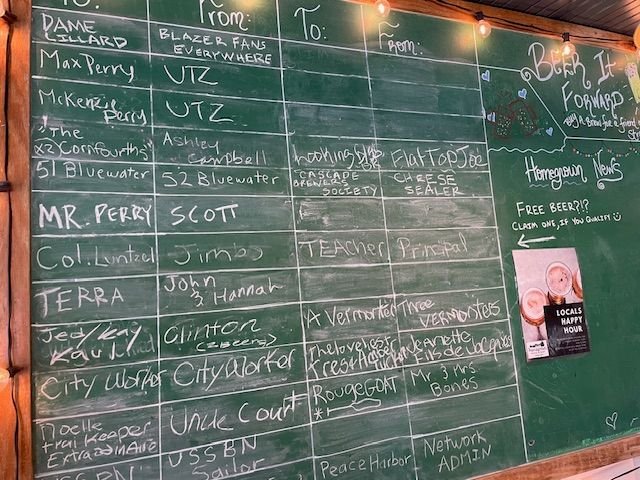 To:
From:
To:
From:
DAME LILLARD
BLAZER FANS EVERYWHERE
Max Perry
UTZ
McKenzie Perry
UTZ
"The x2 Cornfourths"
Ashley Campbell
Lookingglass
FlatTopJoe
51 Bluewater
52 Bluewater
CASCADE
SOCIETY
CHEESE SEALER
MR. PERRY
SCOTT
Col. Luntzel
Jimbo
TEACHER
Principal
TERRA
John & Hannah
Clinton
(2 BEERS)
A Vermonter
Three VERMONTERS
City Worker
City Worker
The loveliest
Jeanette
Noelle trail Keeper Extraordinaire
Uncle Court
ROUGEGOAT
Mr & Mrs Bones
USSBN Sailor
Peace Harbor
Network ADMIN
BEER IT FORWARD
Buy a brew for a friend
Homegrown News
FREE BEER?!?
CLAIM ONE, IF YOU QUALIFY
LOCALS
HAPPY
HOUR